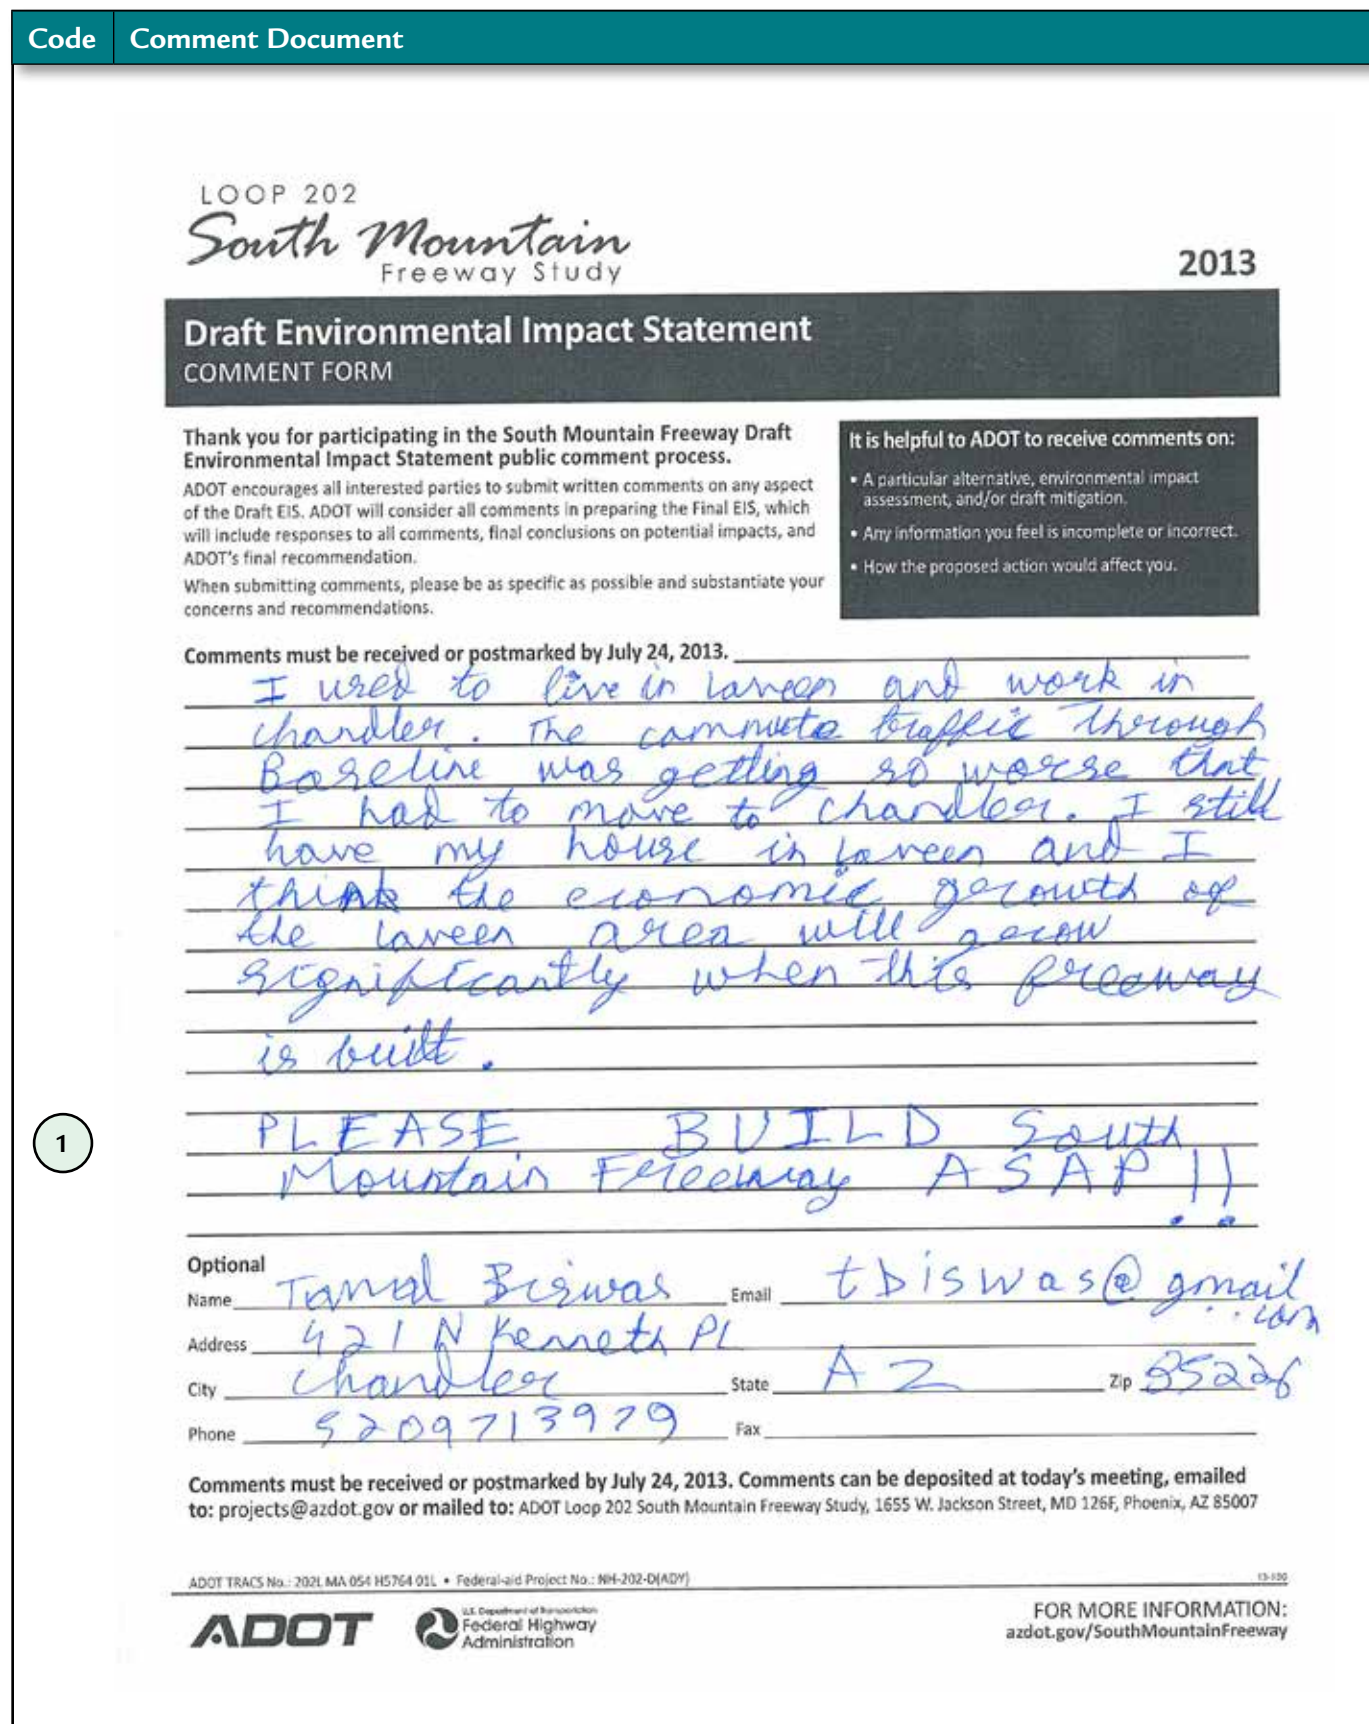 Code Comment Document
LOOP 202
South Mountain
Freeway Study
2013
Draft Environmental Impact Statement
COMMENT FORM
Thank you for participating in the South Mountain Freeway Draft
Environmental Impact Statement public comment process.
ADOT encourages all interested parties to submit written comments on any aspect
of the Draft EIS. ADOT will consider all comments in preparing the Final EIS, which
will include responses to all comments, final conclusions on potential impacts, and
ADOT's final recommendation.
When submitting comments, please be as specific as possible and substantiate your
concerns and recommendations.
It is helpful to ADOT to receive comments on:
• A particular alternative, environmental impact
assessment, and/or draft mitigation.
• Any information you feel is incomplete or incorrect.
• How the proposed action would affect you.
Comments must be received or postmarked by July 24, 2013.
I used to live in Laveen and work in
chandler. The commute traffic through
Baseline was getting so worse that
I had to move to chandler. I still
have my house in Laveen and I
think the economic growth of
the Laveen area will grow
significantly when this freeway
is built.
1
PLEASE BUILD South
Mountain Freeway ASAP!!
Optional
Name Tamal Biswas Email tbiswas@gmail
.com
Address 421 N Kenneth PL
City Chandler State AZ Zip 85226
Phone 5209713979 Fax
Comments must be received or postmarked by July 24, 2013. Comments can be deposited at today's meeting, emailed
to: projects@azdot.gov or mailed to: ADOT Loop 202 South Mountain Freeway Study, 1655 W. Jackson Street, MD 126F, Phoenix, AZ 85007
ADOT TRACS No.: 202L MA 054 H5764 01L • Federal-aid Project No.: NH-202-D(ADY)
13-100
ADOT
U.S. Department of Transportation
Federal Highway
Administration
FOR MORE INFORMATION:
azdot.gov/SouthMountainFreeway